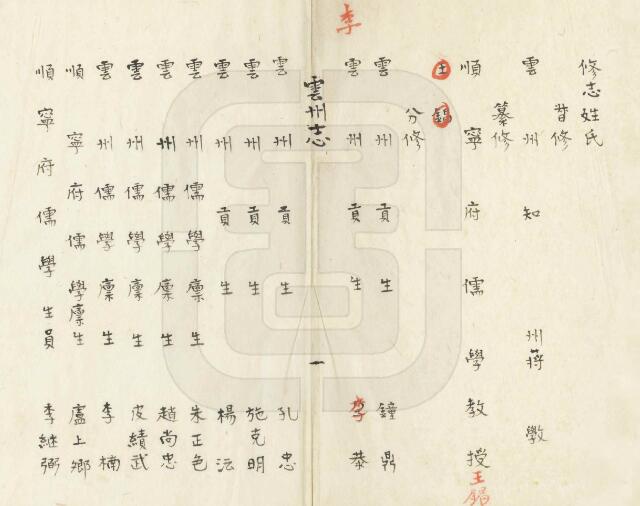 修志姓氏
督修
雲州知州蔣
纂修
順寧府儒學教授王錫
分修
雲州貢生鐘鼎
李
雲州貢生李恭
雲州志
一
雲州貢生孔忠
雲州貢生施克明
雲州貢生楊沄
雲州儒學廩生朱正色
雲州儒學廩生趙尚忠
雲州儒學廩生皮績武
雲州儒學廩生李楠
順寧府儒學廩生盧上鄉
順寧府儒學生員李継弼